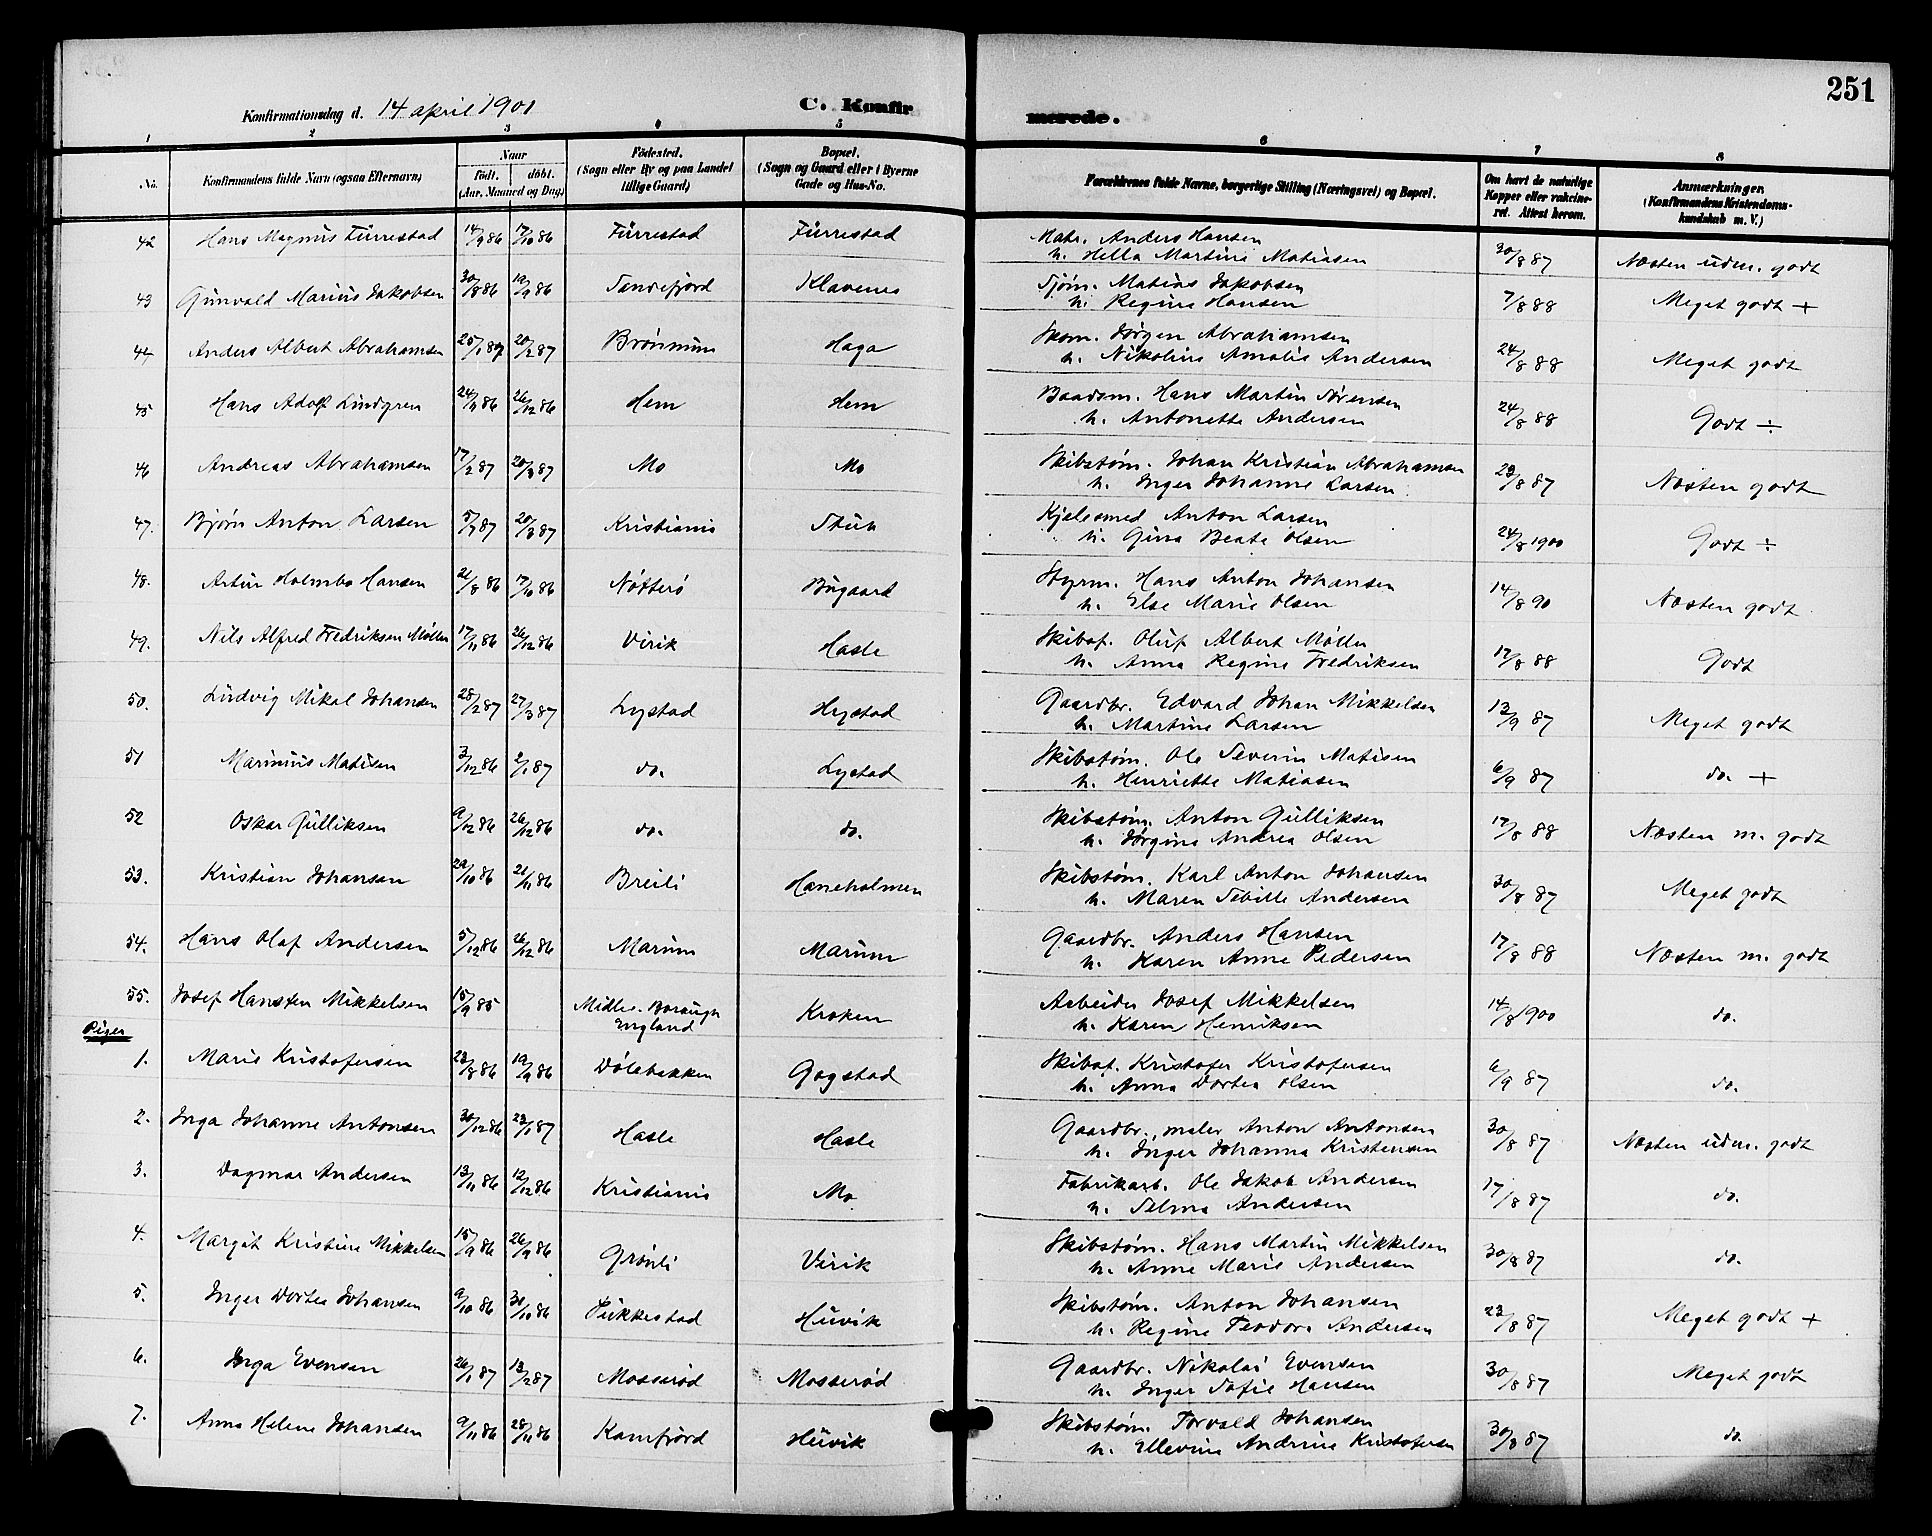 251
Konfirmationsdag d. 14 april 1901 C. Konfirmerede.
1 2 3 4 5 6 7 8
No. Konfirmandens fulde Navn (ogsaa Efternavn) Naar født. døbt. (Aar, Maaned og Dag) Fødested. (Sogn eller By og paa Landet tillige Gaard) Bopæl. (Sogn og Gaard eller i Byerne Gade og Hus-No. Forældrenes fulde Navne, borgerlige Stilling (Næringsvei) og Bopæl. Om havt de naturlige Kopper eller vaccineret. Attest herom. Anmærkninger. (Konfirmandens Kristendomskundskab m. V.)
42 Hans Magnus Furrestad 14/9 86 17/10 86 Furrestad Furrestad Matr. Anders Hansen 30/8 87 Næsten udm. godt
h. Hella Martine Matiasen
43 Gunvald Marius Jakobsen 30/8 86 19/9 86 Sandefjord Klavenes Sjøm. Matias Jakobsen 7/8 88 Meget godt +
h. Regine Hansen
44 Anders Albert Abrahamsen 25/1 87 20/2 87 Brønnum Haga Skom. Jørgen Abrahamsen 24/8 88 Meget godt
h. Nikoline Amalie Andersen
45 Hans Adolf Lindgren 24/9 86 26/12 86 Hem Hem Baadsm. Hans Martin Sørensen 24/8 88 Godt ÷
h. Antonette Andersen
46 Andreas Abrahamsen 17/2 87 20/3 87 Mo Mo Skibstøm. Johan Kristian Abrahamsen 23/8 87 Næsten godt
h. Inger Johanne Larsen
47. Bjørn Anton Larsen 20/3 87 Kristiania Stub Kjelesmed Anton Larsen 24/8 1900 Godt ÷
h. Gina Beate Olsen
48. Artur Holmbo Hansen 21/8 86 17/10 86 Nøtterø Bugaard Styrm. Hans Anton Johansen 14/8 90 Næsten godt
h. Else Marie Olsen
49. Nils Alfred Fredriksen Møller 17/11 86 26/12 86 Virik Hasle Skibsf. Oluf Albert Møller 17/8 88 Godt
h. Anna Regine Fredriksen
50. Ludvig Mikal Johansen 28/2 87 27/3 87 Lystad Hystad Gaardbr. Edvard Johan Mikkelsen 13/9 87 Meget godt
h. Martine Larsen
51 Marinius Matisen 3/12 86 2/1 87 do. Lystad Skibstøm. Ole Severin Matisen 6/9 87 do. +
h. Henriette Matiasen
52 Oskar Gulliksen 9/12 86 26/12 86 do. do. Skibstøm. Anton Gulliksen 17/8 88 Næsten m. godt
h. Jørgine Andrea Olsen
53. Kristian Johansen 29/10 86 21/11 86 Breili Haneholmen Skibstøm. Karl Anton Johansen 30/8 87 Meget godt
h. Maren Sibille Andersen
54. Hans Olaf Andersen 5/12 86 26/12 86 Marum Marum Gaardbr. Anders Hansen 17/8 88 Næsten m. godt
h. Karen Anne Pedersen
55. Josef Hansten Mikkelsen 15/9 85 Midles-Borough England Kroken Arbeider Josef Mikkelsen 14/8 1900 do.
h. Karen Henriksen
Piger
1. Marie Kristofersen 23/8 86 19/9 86 Dølebakken Gogstad Skibsf. Kristofer Kristofersen 6/9 87 do.
h. Anna Dortea Olsen
2. Inga Johanne Antonsen 30/12 86 23/1 87 Hasle Hasle Gaardbr., maler Anton Antonsen 30/8 87 Næsten udm. godt
h. Inger Johanna Kristensen
3. Dagmar Andersen 13/11 86 12/12 86 Kristiania Mo Fabrikarb. Ole Jakob Andersen 17/8 87 do.
h. Selma Andersen
4. Margit Kristine Mikkelsen 15/9 86 26/9 86 Grønli Virik Skibstøm. Hans Martin Mikkelsen 30/8 87 do.
h. Anne Marie Andersen
5. Inger Dortea Johansen 9/10 86 30/10 86 Pukkestad Huvik Skibstøm. Anton Johansen 23/8 87 Meget godt +
h. Regine Teodora Andersen
6. Inga Evensen 26/1 87 13/2 87 Mosserød Mosserød Gaardbr. Nikolai Evensen 30/8 87 Meget godt
h. Inger Sofie Hansen
7. Anna Helene Johansen 9/11 86 28/11 86 Kamfjord Huvik Skibstøm. Torvald Johansen 30/8 87 do.
h. Ellevine Andrine Kristofersen